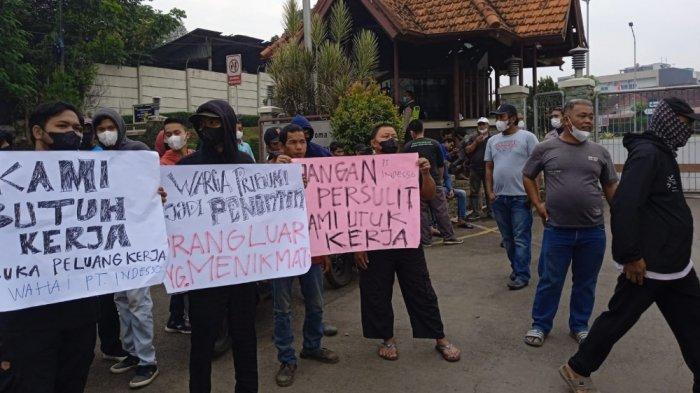 KAMI
BUTUH
KERJA
BUKA PELUANG KERJA
WAHAI PT. INDESSO
WARGA PRIBUMI
JADI PENONTON
ORANG LUAR
YG. MENIKMATI
JANGAN PT INDESSO
PERSULIT
KAMI UTUK
KERJA